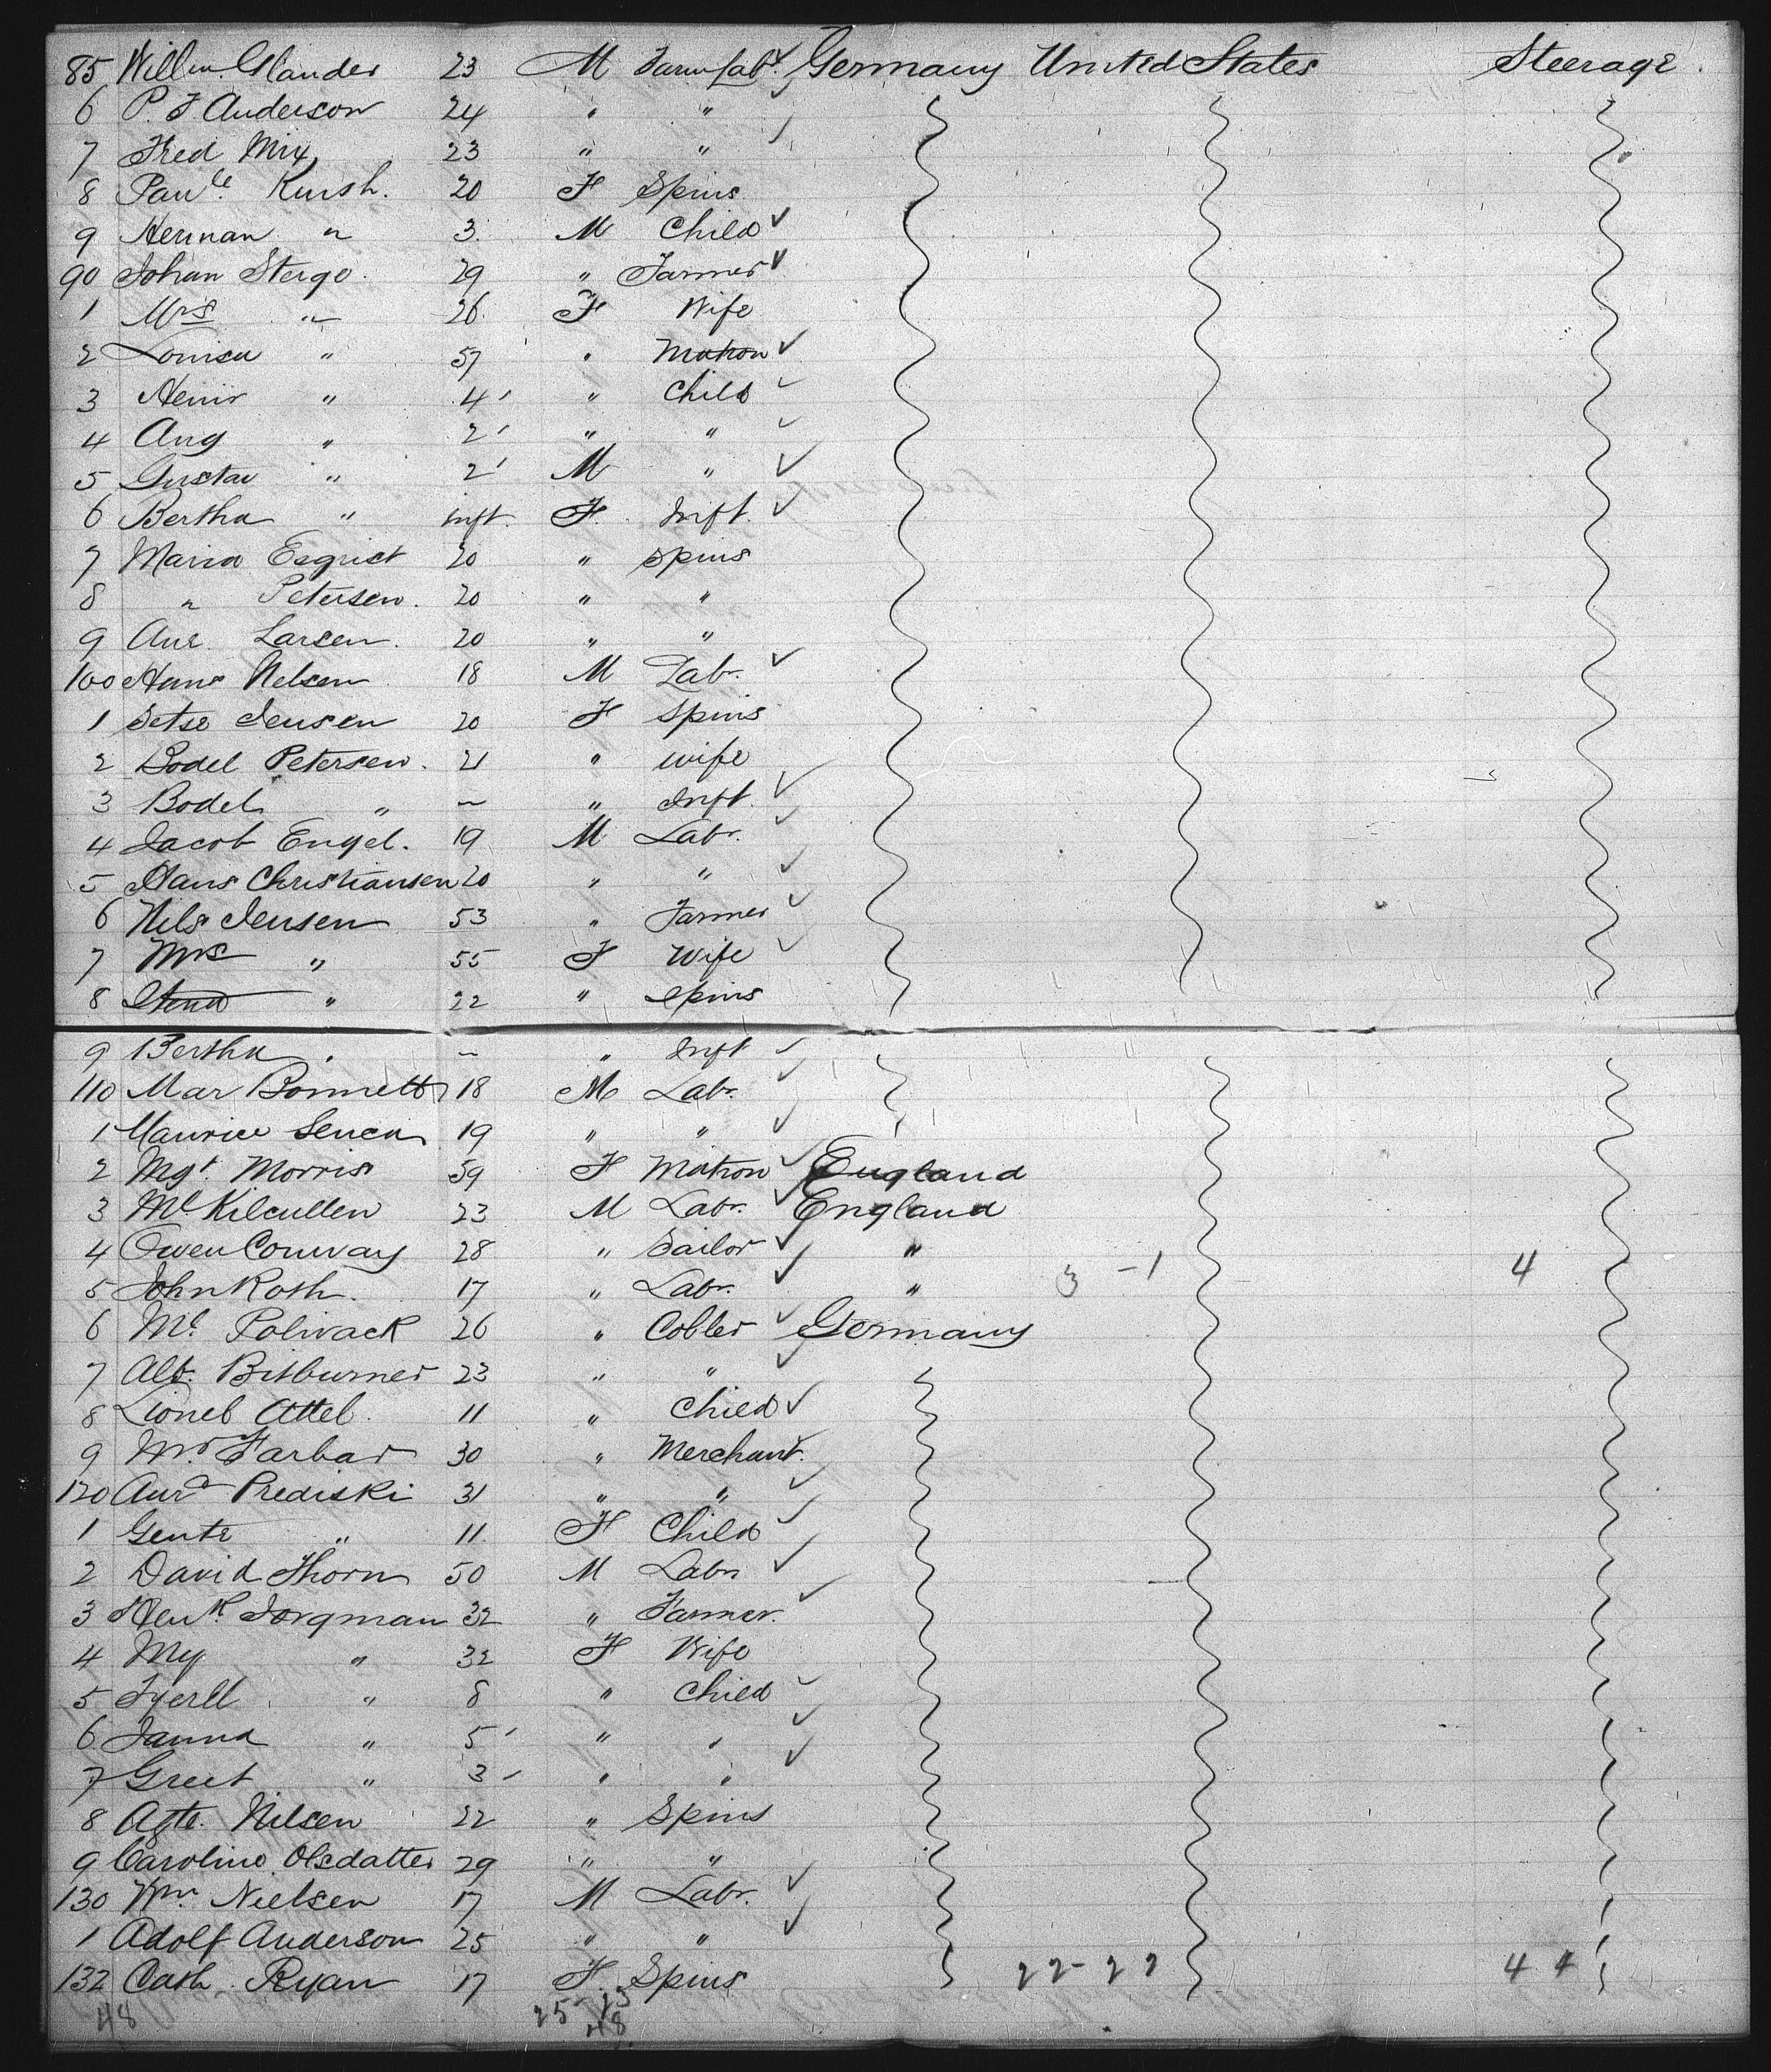 85 Willm. Glander 23 M Farm Labr. Germany United States Steerage
6 P. F Anderson 24 " "
7 Fred Mix 23 " "
8 Paule. Kursh. 20 F Spins.
9 Herman " 3. M Child
90 Johan Stergo. 29 " Farmer
1 Mrs " 26. F Wife
2 Louisa " 57 " Matron
3 " 4 " Child
4 Aug " 2 " "
5 Gustav " 2 M "
6 Bertha " inft. F. Inft.
7 Maria Esqrist 20 " Spins
8 " Petersen. 20 " "
9 Ane Larsen. 20 " "
100 Hans Nelsen 18 M Labr.
1 Jensen 20 F Spins
2 Bodel Petersen. 21 " Wife
3 Bodel " ~ " Inft.
4 Jacob Engel. 19 M Labr.
5 Hans Christiansen 20 " "
6 Nels Jensen 53 " Farmer
7 Mrs " 55 F Wife
8 Stena " 22 " Spins
9 Bertha " ~ " Inft
110 Mar Bonnett 18 M Labr.
1 Maurice 19 " "
2 Mgt. Morris 59 F Matron England
3 Ml Kilcullen 23 M Labr. England
4 Owen Conway 28 " Sailor "
5 John Roth. 17 " Labr. " 3 - 1 4
6 Ml. Polivack 26 " Cobler Germany
7 Alb. Bitburner 23 " "
8 Lionel Attel. 11 " Child
9 Mr. Farbar 30 " Merchant.
120 Prediski 31 " "
1 Gente " 11. F Child
2 David Thorn 50 M Labr
3 Henk. Jorgman 32 " Farmer.
4 My " 32 F Wife
5 " 8 " Child
6 Janna " 5 " "
7 Greet " 3 " "
8 Agte. Nilsen 22 " Spins
9 Caroline Olsdatter 29 " "
130 Wm. Nielsen 17 M Labr.
1 Adolf Anderson 25 " "
132 Cath. Ryan 17 F Spins 22-22 4 4
48 25-23
48